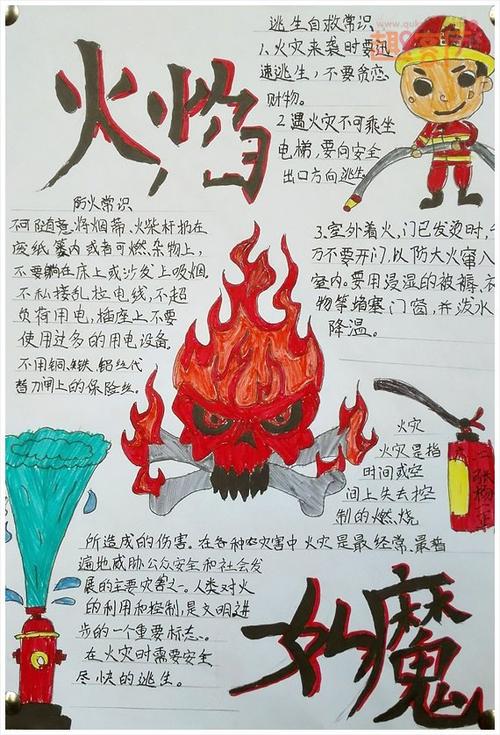 火焰
逃生自救常识
1.火灾来袭时要迅
速逃生，不要贪恋
财物。
2.遇火灾不可乘坐
电梯，要向安全
出口方向逃生
防火常识
不可随意将烟蒂、火柴杆扔在
废纸篓内或者可燃杂物上，
不要躺在床上或沙发上吸烟。
不私接乱拉电线，不超
负荷用电，插座上不要
使用过多的用电设备
不用铜、铁、铝丝代
替刀闸上的保险丝。
3.室外着火、门已发烫时，千
万不要开门，以防大火窜入
室内。要用浸湿的被褥、衣
物等堵塞门窗，并泼水
降温。
火灾
火灾是指
时间或空
间上失去控
制的燃烧
所造成的伤害。在各种灾害中火灾是最经常、最普
遍地威胁公众安全和社会发
展的主要灾害之一。人类对火
的利用和控制，是文明进
步的一个重要标志。
在火灾时需要安全
尽快的逃生。
如魔